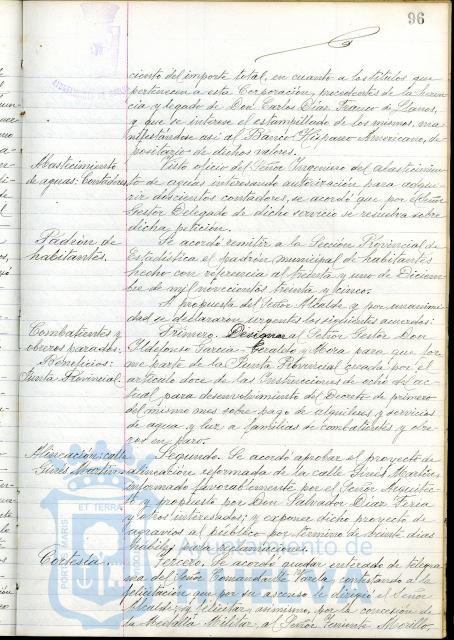 96
ciento del importe total, en cuanto a los títulos que
pertenecen a esta Corporación, procedentes de la heren
cia y legado de Don Carlos Díaz Franco de Llanos,
y que se interese el estampillado de los mismos, ma
nifestándose así al Banco Hispano Americano, de
positario de dichos valores.
Abastecimiento
de aguas: Contadores
Visto oficio del Señor Ingeniero del abastecimien
to de aguas interesando autorización para adqui
rir doscientos contadores, se acordó que por el Señor
Gestor Delegado de dicho servicio se resuelva sobre
dicha petición.
Padrón de
habitantes.
Se acordó remitir a la Sección Provincial de
Estadística el padrón municipal de habitantes
hecho con referencia al treinta y uno de Diciem
bre de mil novecientos treinta y cinco.
A propuesta del Señor Alcalde y por unanimi
dad se declararon urgentes los siguientes acuerdos:
Combatientes y
obreros parados.
Beneficios:
Junta Provincial.
Primero. Designar al Señor Gestor Don
Ildefonso García-Geraldo y Mora para que for
me parte de la Junta Provincial creada por el
artículo doce de las Instrucciones de ocho del ac
tual, para desenvolvimiento del Decreto de primero
del mismo mes sobre pago de alquileres y servicios
de agua y luz a familias de combatientes y obre
ros en paro.
Alineación: calle
Ginés Martín
Segundo. Se acordó aprobar el proyecto de
alineación reformada de la calle Ginés Martín,
informado favorablemente por el Señor Arquitec
to y propuesto por Don Salvador Díaz Feria
y otros interesados; y exponer dicho proyecto de
agravios al público por término de veinte días
hábiles para reclamaciones.
Cortesía.
Tercero. Se acordó quedar enterado de telegra
ma del Señor Comandante Varela, contestando a la
felicitación que por su ascenso le dirigió el Señor
Alcalde; y felicitar, asimismo, por la concesión de
la Medalla Militar, al Señor Teniente Morillo,
ET TERRA
Ayuntamiento de